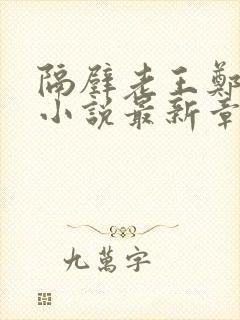 隔壁老王鄭
小說最新章
九萬字